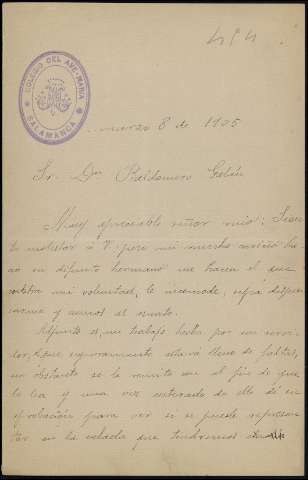 454
COLEGIO DEL AVE-MARIA
SALAMANCA
marzo 8 de 1905
Sr. Dn Baldomero
Muy apreciable señor mio: Sien-
to molestar á V. pero mi mucho cariño hacia
su difunto hermano me hacen el que
contra mi voluntad, le incomode, sufra
y vamos al asunto.
Adjunto es, un trabajo hecho por un
que seguramente estará lleno de faltas,
no obstante se lo remito con el fin de que
lo lea y una vez enterado de ello dé su
aprobación para ver si se puede represen-
tar, en la velada que tendremos